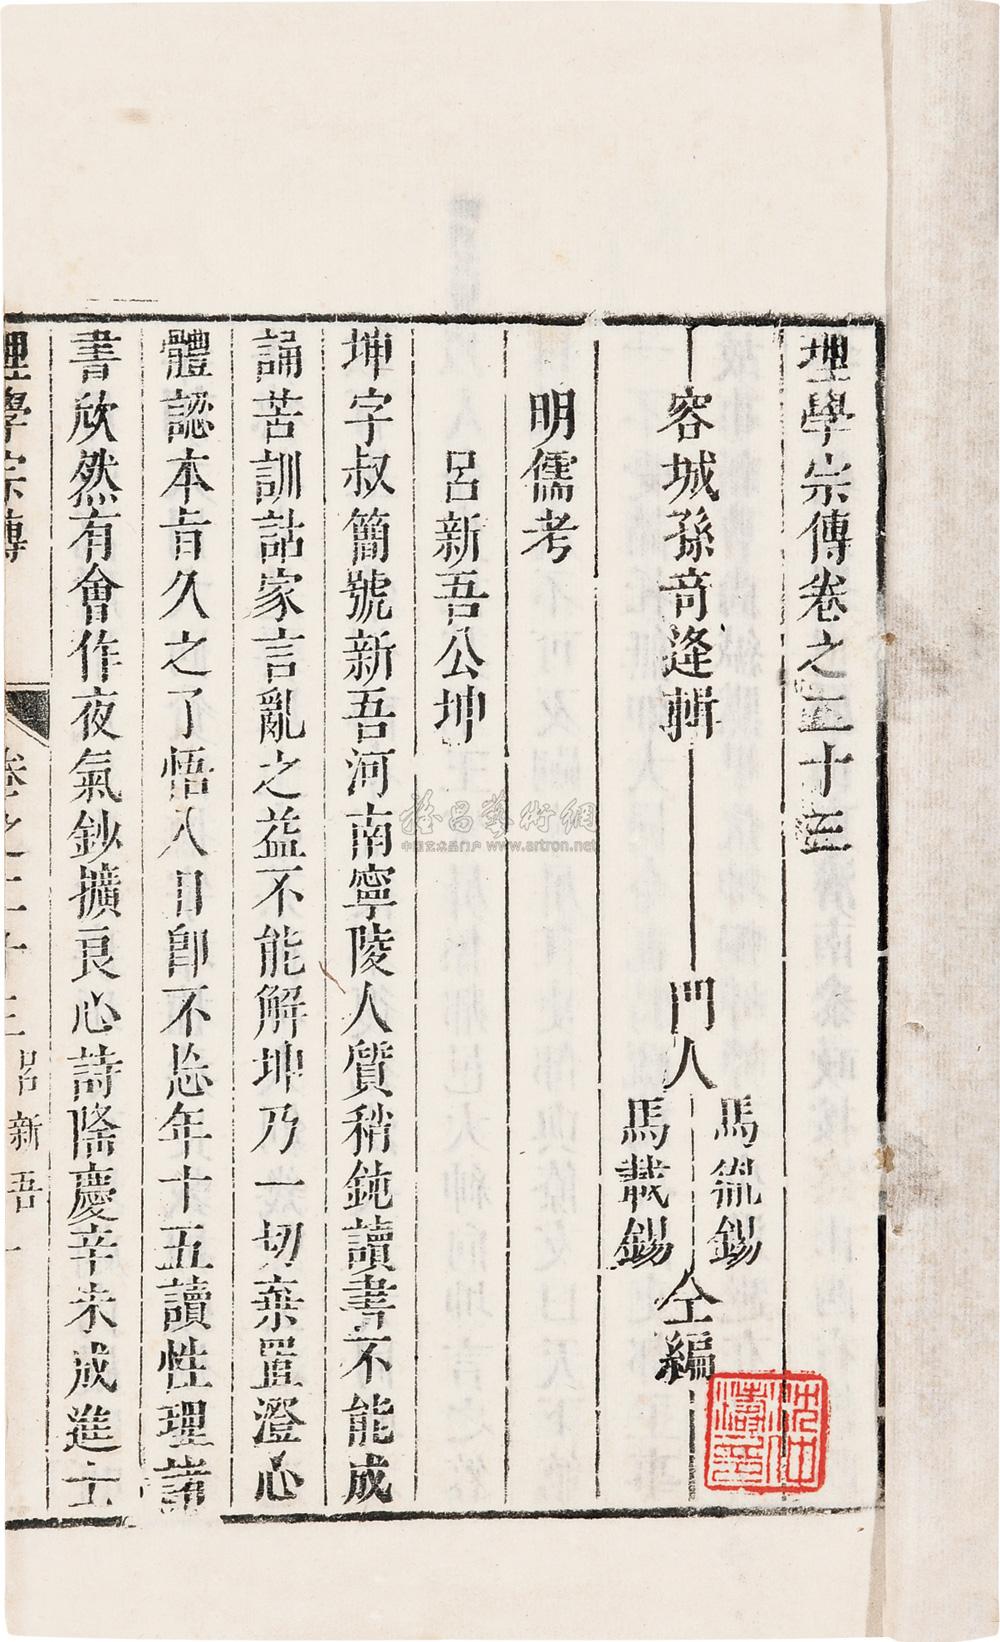 理學宗傳卷之二十三
容城孫奇逢輯
門人
馬㲶錫
馬載錫
仝編
明儒考
呂新吾公坤
坤字叔簡號新吾河南寧陵人質稍鈍讀書不能成
誦苦訓詁家言亂之益不能解坤乃一切棄置澄心
體認本旨久之了悟入目卽不忘年十五讀性理諸
書欣然有會作夜氣鈔擴良心詩隆慶辛未成進士
理學宗傳
卷之二十三
呂新吾
一
雅昌藝術網
中国艺术品门户 www.artron.net